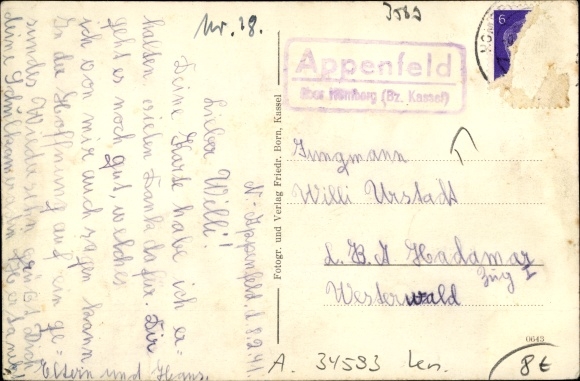 Nr. 28.
3589
6
Appenfeld
über Homberg (Bz. Kassel)
N.-Appenfeld, d. 8.2.41.
Lieber Willi!
Deine Karte habe ich er-
halten vielen Dank dafür. Dir
geht es noch gut, welches
ich von mir auch sagen kann
In der Hoffnung auf ein ge-
sundes Wiedersehn grüßt Dich
deine Schulkameradin
Eltern und Hans.
Fotogr. und Verlag Friedr. Born, Kassel
Jungmann
Willi Urstadt
L.B.A Hadamar
Zug I
Westerwald
0643
A. 34593 Len.
8€